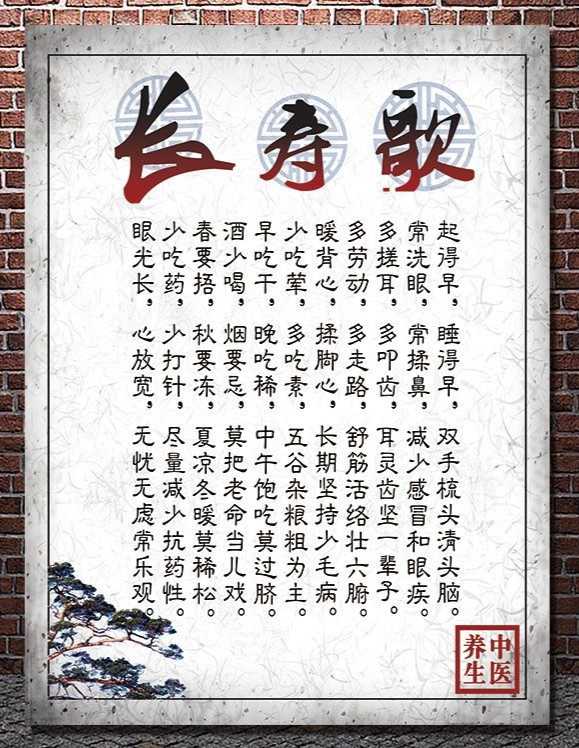 长寿歌
起得早，睡得早，双手梳头清头脑。
常洗眼，常揉鼻，减少感冒和眼疾。
多搓耳，多叩齿，耳灵齿坚一辈子。
多劳动，多走路，舒筋活络壮六腑。
暖背心，揉脚心，长期坚持少毛病。
少吃荤，多吃素，五谷杂粮粗为主。
早吃干，晚吃稀，中午饱吃莫过脐。
酒少喝，烟要忌，莫把老命当儿戏。
春要捂，秋要冻，夏凉冬暖莫稀松。
少吃药，少打针，尽量减少抗药性。
眼光长，心放宽，无忧无虑常乐观。
中医
养生